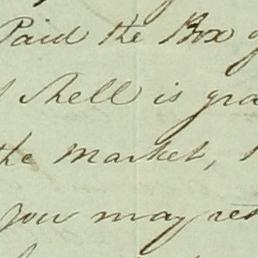 Paid the Box
Shell is gra
the market,
you may res